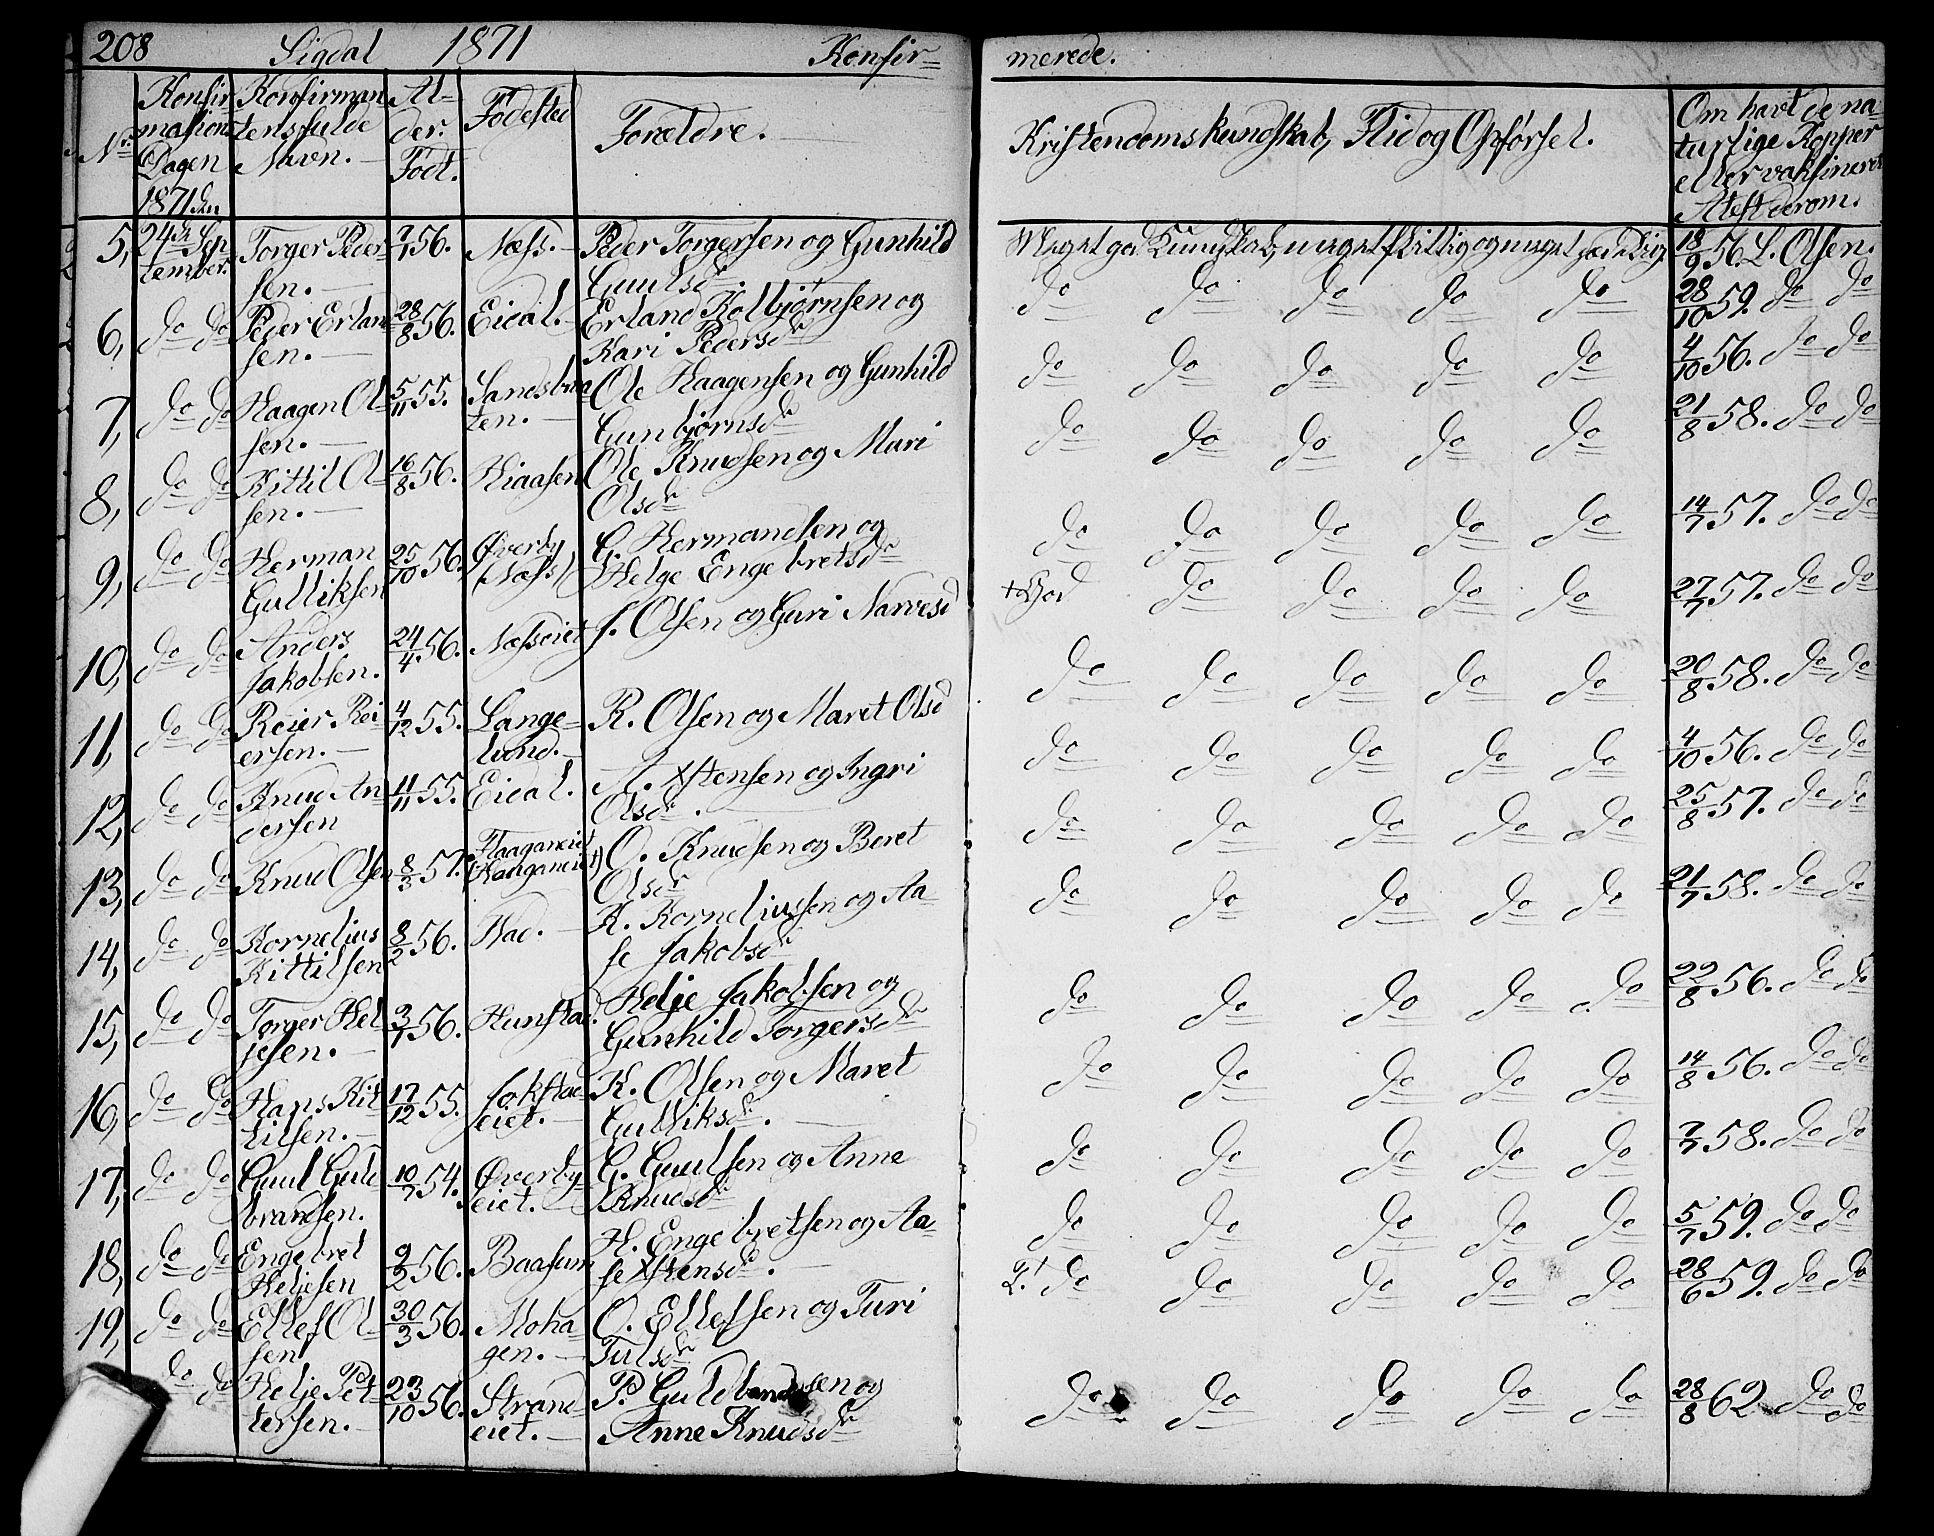 208 Sigdal 1871 Konfir=
merede.
No. Konfirmasions Dagen 1871 den Konfirmantens fulde Navn. Alder. Født. Fødested Foreldre.
Kristendomskundskab, Flid og Opførsel. Om havt de naturlige Kopper eller vaksineret Atest derom.
5, 24de September. Torger Pedersen. 7/7 56. Næss. Peder Torgersen og Gunhild Guulsdr. Meget god Kundskab, meget flittig og meget sædelig 18/9 56. L. Olsen.
6, do do Peder Erlansen. 28/8 56. Eidal. Erland Kolbjørnsen og Kari Pedersdr do do do do do 28/10 59. do do
7, do do Haagen Olsen. 5/11 55. Sandsbraaten. Ole Haagensen og Gunhild Gunbjørnsdr do do do do do 4/10 56. do do
8, do do Kittil Olsen. 16/8 56. Kiaasen Ole Knudsen og Mari Olsdr do do do do do 21/8 58. do do
9, do do Herman Gulliksen 25/10 56. Øverby (Næss) G. Hermandsen og Helge Engebretsdr do do do do do 14/7 57. do do
10, do do Anders Jakobsen. 24/4 56. Næsseiet J. Olsen og Guri Narvesd + God do do do do 27/7 57. do do
11, do do Reier Reiersen. 4/12 55. Langelund. R. Olsen og Maret Olsd do do do do do 20/8 58. do do
12, do do Knud Andersen 11/11 55. Eidal. A. Xstensen og Ingri Olsdr. do do do do do 4/10 56. do do
13, do do Knud Olsen 8/3 57. Haaganeiet (Haaganeiet) O. Knudsen og Beret Olsdr do do do do do 25/8 57. do do
14, do do Kornelius Kittilsen 8/2 56. Kad. K. Korneliussen og Aase Jakobsdr do do do do do 21/7 58. do do
15, do do Torger Heljesen. 3/7 56. Hunstad. Helje Jakobsen og Gunhild Torgersdr do do do do do 22/8 56. do do
16, do do Hans Kittilsen. 17/12 55. Jokstadeiet. K. Olsen og Maret Gulliksdr. do do do do do 14/8 56. do do
17, do do Guul Gulbransen. 10/7 54. Øverbyeiet. G. Guulsen og Anne Knudsdr do do do do do 7/7 58. do do
18, do do Engebret Heljesen 9/2 56. Baasum H. Engebretsen og Aase Xstensdr. do do do do do 5/7 59. do do
19, do do Ellef Olsen 30/3 56. Mohagen. O. Ellefsen og Turi Tulsdr do do do do do 28/6 59. do do
do do Helje Pettersen. 23/10 56. Strandeiet. P. Guldbrandsen og Anne Knudsdr do do do do do 28/8 62. do do